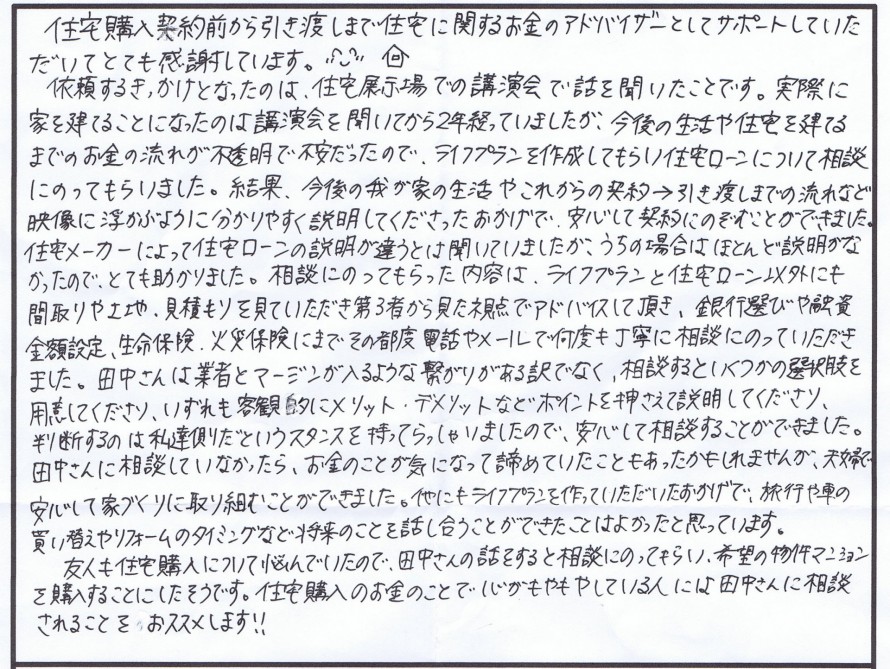 住宅購入契約前から引き渡しまで住宅に関するお金のアドバイザーとしてサポートしていた
だいてとても感謝しています。
依頼するきっかけとなったのは、住宅展示場での講演会で話を聞いたことです。実際に
家を建てることになったのは講演会を聞いてから2年経っていましたが、今後の生活や住宅を建てる
までのお金の流れが不透明で不安だったので、ライフプランを作成してもらい住宅ローンについて相談
にのってもらいました。結果、今後の我が家の生活やこれからの契約→引き渡しまでの流れなど
映像に浮かぶように分かりやすく説明してくださったおかげで、安心して契約にのぞむことができました。
住宅メーカーによって住宅ローンの説明が違うとは聞いていましたが、うちの場合はほとんど説明がな
かったので、とても助かりました。相談にのってもらった内容は、ライフプランと住宅ローン以外にも
間取りや土地、見積もりを見ていただき第3者から見た視点でアドバイスして頂き、銀行選びや融資
金額設定、生命保険、火災保険にまでその都度電話やメールで何度も丁寧に相談にのっていただき
ました。田中さんは業者とマージンが入るような繋がりがある訳でなく、相談するといくつかの選択肢を
用意してくださり、いずれも客観的にメリット・デメリットなどポイントを押さえて説明してくださり、
判断するのは私達側だというスタンスを持ってらっしゃいましたので、安心して相談することができました。
田中さんに相談していなかったら、お金のことが気になって諦めていたこともあったかもしれませんが、夫婦で
安心して家づくりに取り組むことができました。他にもライフプランを作っていただいたおかげで、旅行や車の
買い替えやリフォームのタイミングなど将来のことを話し合うことができたことはよかったと思っています。
友人も住宅購入について悩んでいたので、田中さんの話をすると相談にのってもらい、希望の物件マンション
を購入することにしたそうです。住宅購入のお金のことで心がもやもやしている人には田中さんに相談
されることをおススメします!!